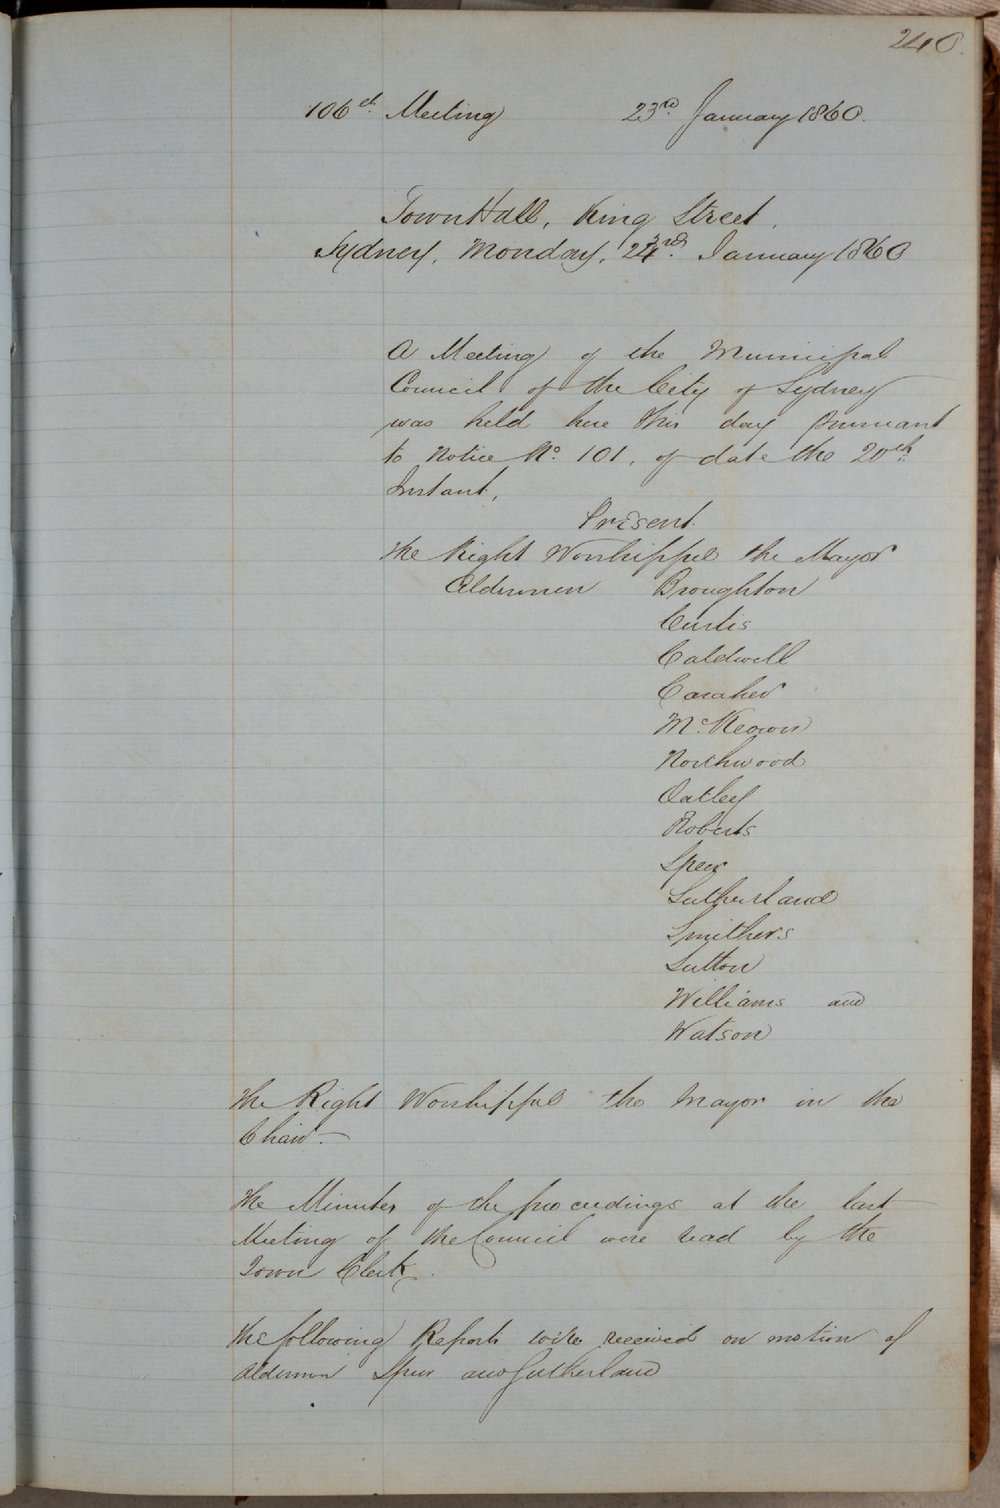 240.
106th. Meeting 23rd. January 1860.
Town Hall, King Street,
Sydney, Monday, 23rd. January 1860
A Meeting of the Municipal
Council of the City of Sydney
was held here this day pursuant
to Notice No. 101, of date the 20th.
Instant,
Present
The Right Worshipful the Mayor
Aldermen Broughton
Curtis
Caldwell
Caraher
McKeown
Northwood
Oatley
Roberts
Speer
Sutherland
Smithers
Sutton
Williams and
Watson
The Right Worshipful the Mayor in the
Chair.—
The Minutes of the proceedings at the last
Meeting of the Council were read by the
Town Clerk.
The following Reports were received on motion of
Aldermen Speer and Sutherland